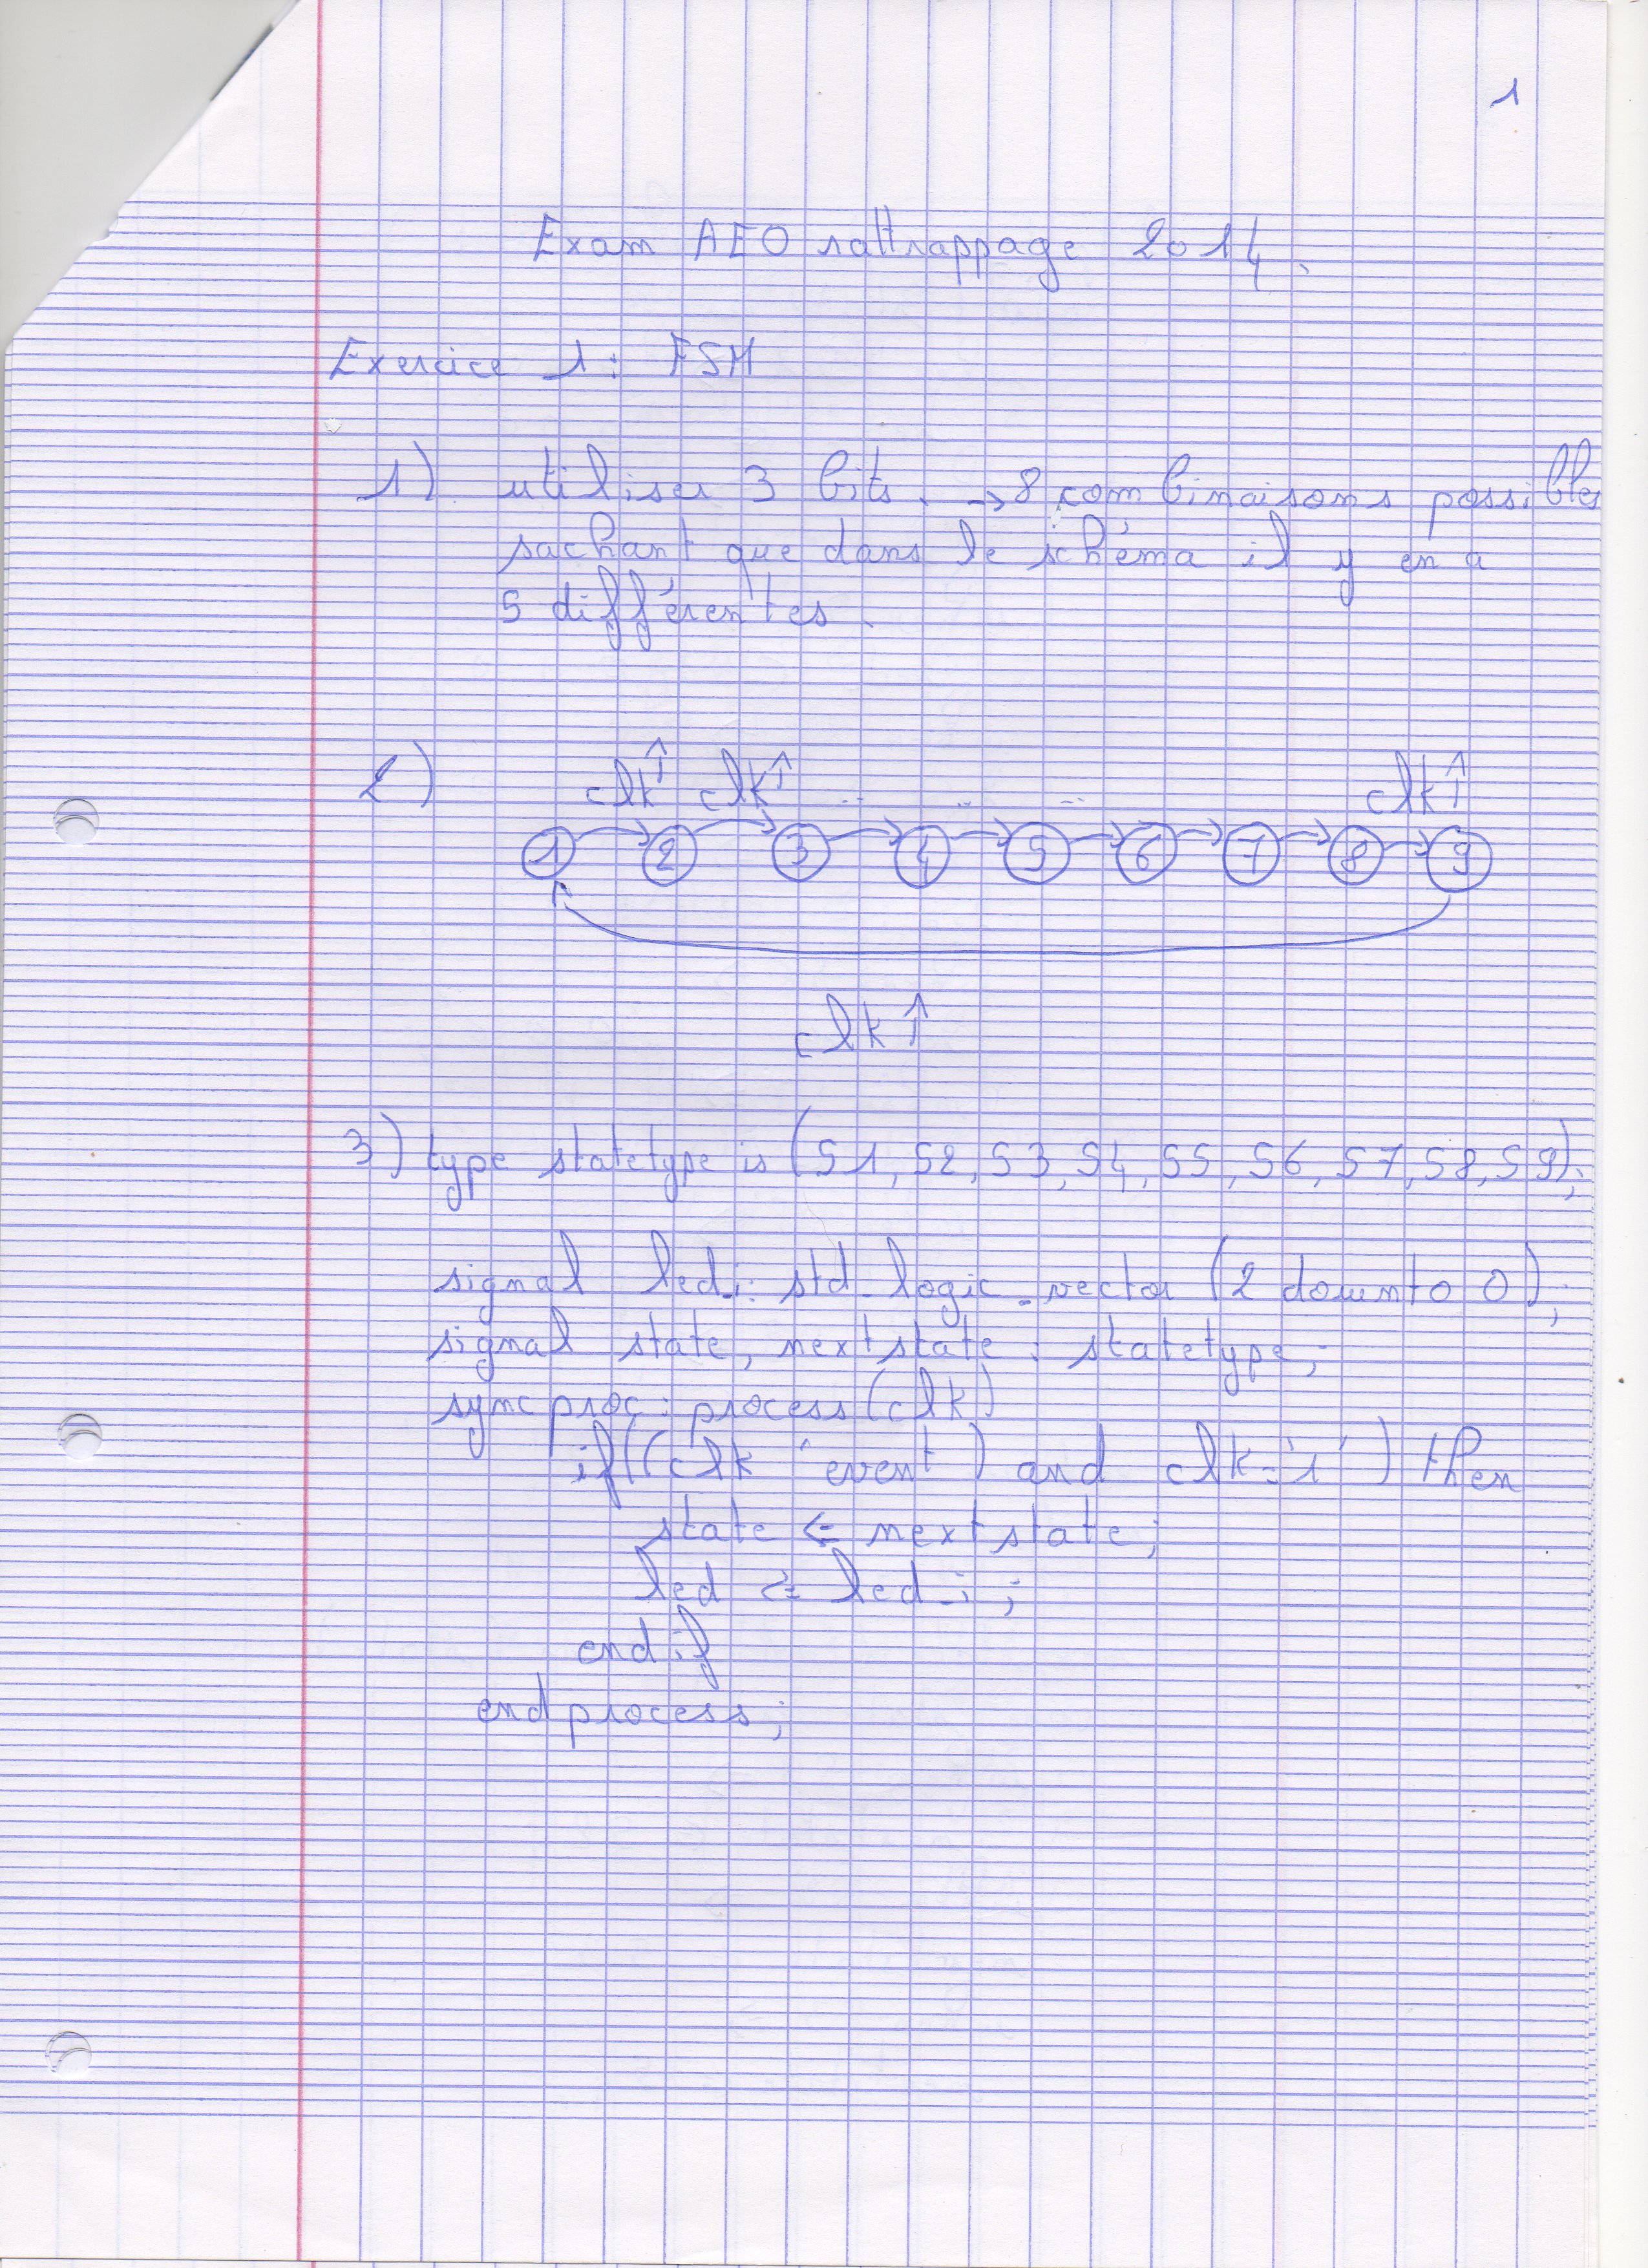 1
Exam AEO rattrappage 2014.
Exercice 1: FSM
1) utiliser 3 bits. → 8 combinaisons possibles
sachant que dans le schéma il y en a
5 différentes.
2) clk↑ clk↑ .. .. .. clk↑
1 2 3 4 5 6 7 8 9
clk↑
3) type statetype is (S1, S2, S3, S4, S5, S6, S7, S8, S9);
signal led_i: std_logic_vector (2 downto 0);
signal state, nextstate : statetype;
syncproc: process(clk)
if((clk 'event) and clk='1') then
state <= nextstate;
led <= led_i;
end if
end process;